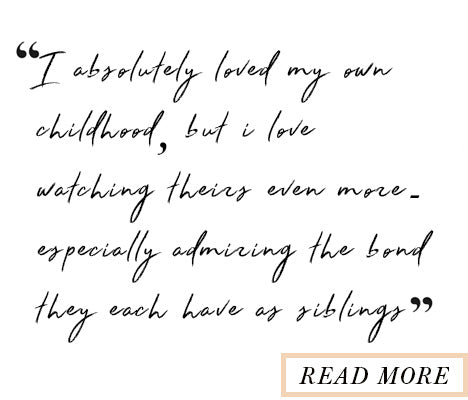 “I absolutely loved my own
childhood, but i love
watching theirs even more-
especially admiring the bond
they each have as siblings”
READ MORE